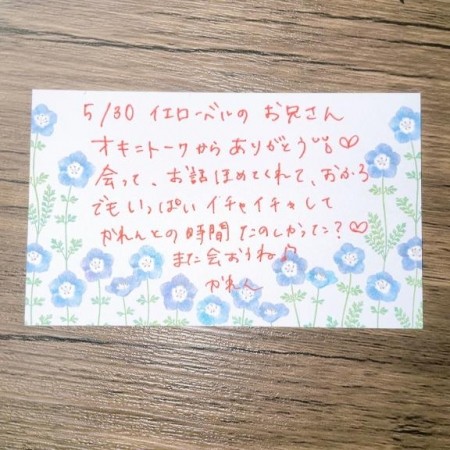 5/30 イエローベルの お兄さん
オキニトークから ありがとう♡
会って、お話ほめてくれて、おふろ
でもいっぱい イチャイチャして
かれんとの 時間 たのしかった？♡
また会おうね♪
かれん